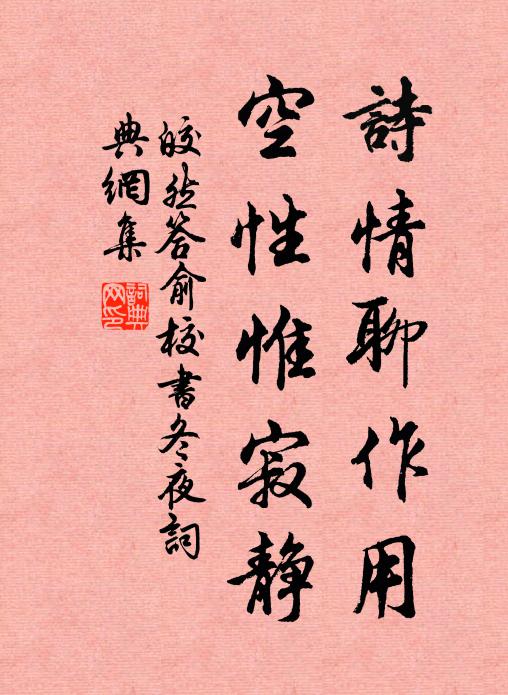 詩情聊作用
空性惟寂静
皎然答俞校書冬夜詞
典網集
詞典网印